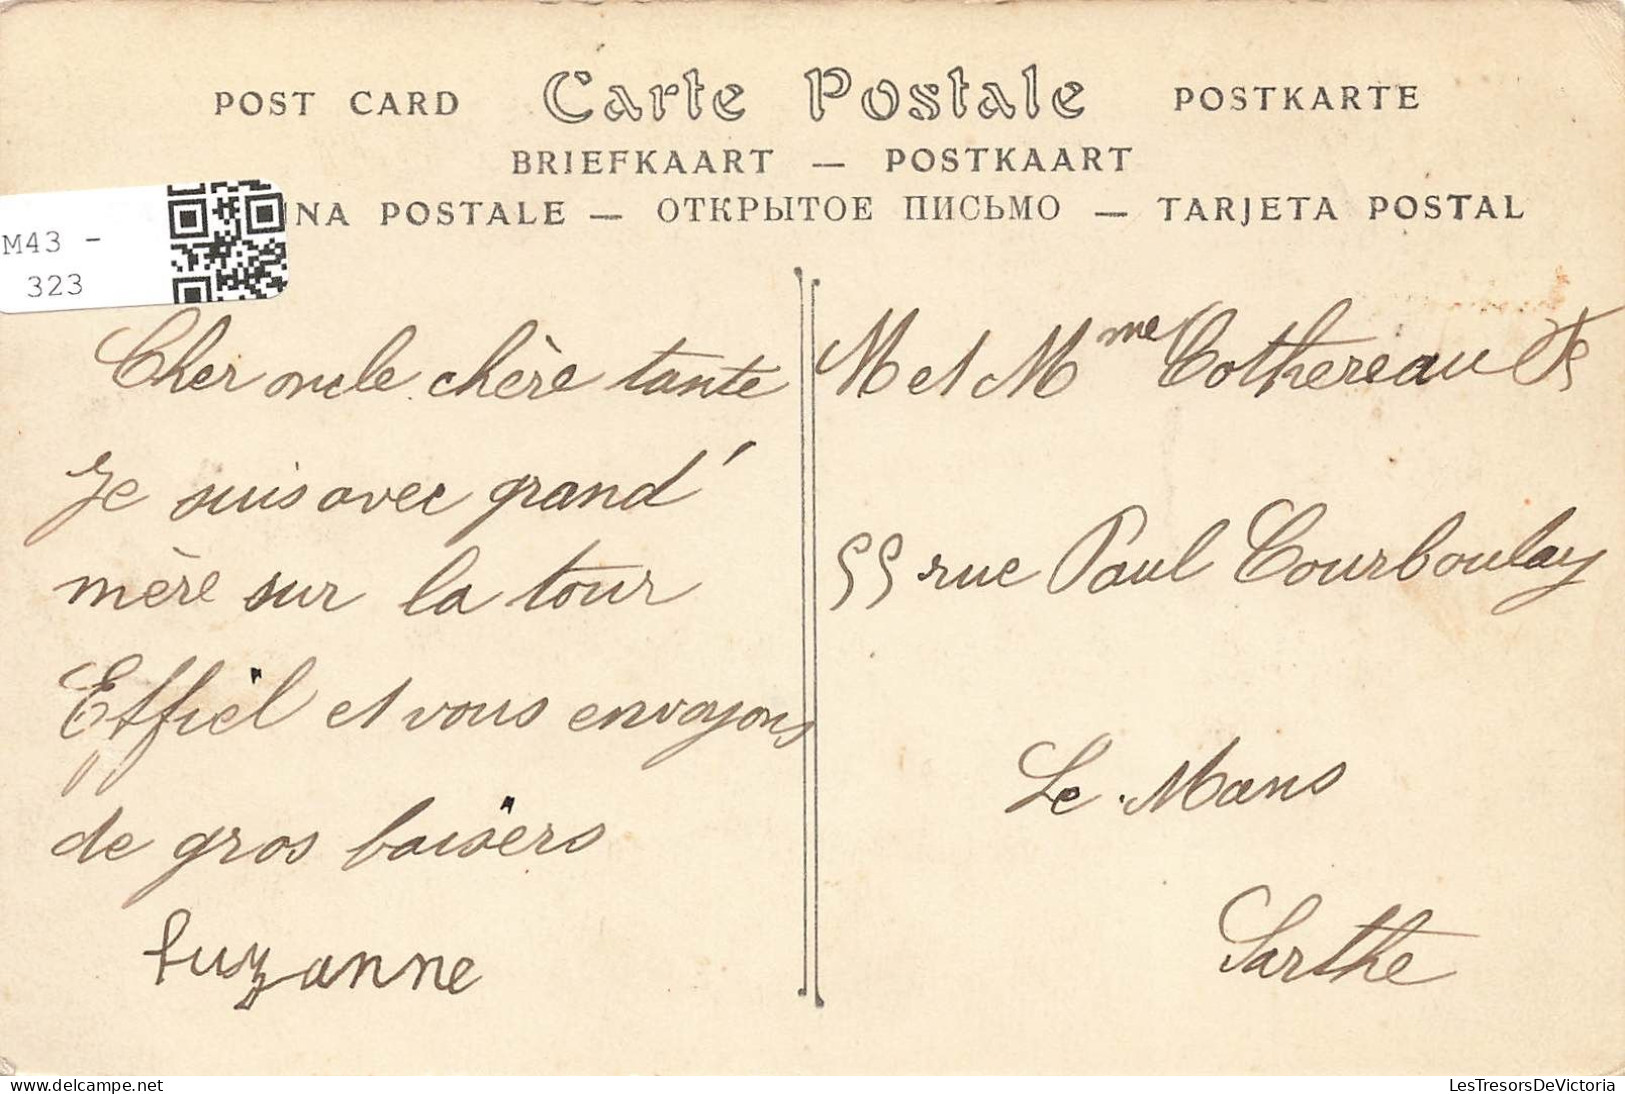 POST CARD Carte Postale POSTKARTE
BRIEFKAART — POSTKAART
INA POSTALE — ОТКРЫТОЕ ПИСЬМО — TARJETA POSTAL
M43 -
323
Cher oncle chère tante
Je suis avec grand'
mère sur la tour
Effiel et vous envoyons
de gros baisers
Suzanne
M et Mme Cothereau
55 rue Paul Courboulay
Le Mans
Sarthe
LesTresorsDeVictoria
delcampe.net